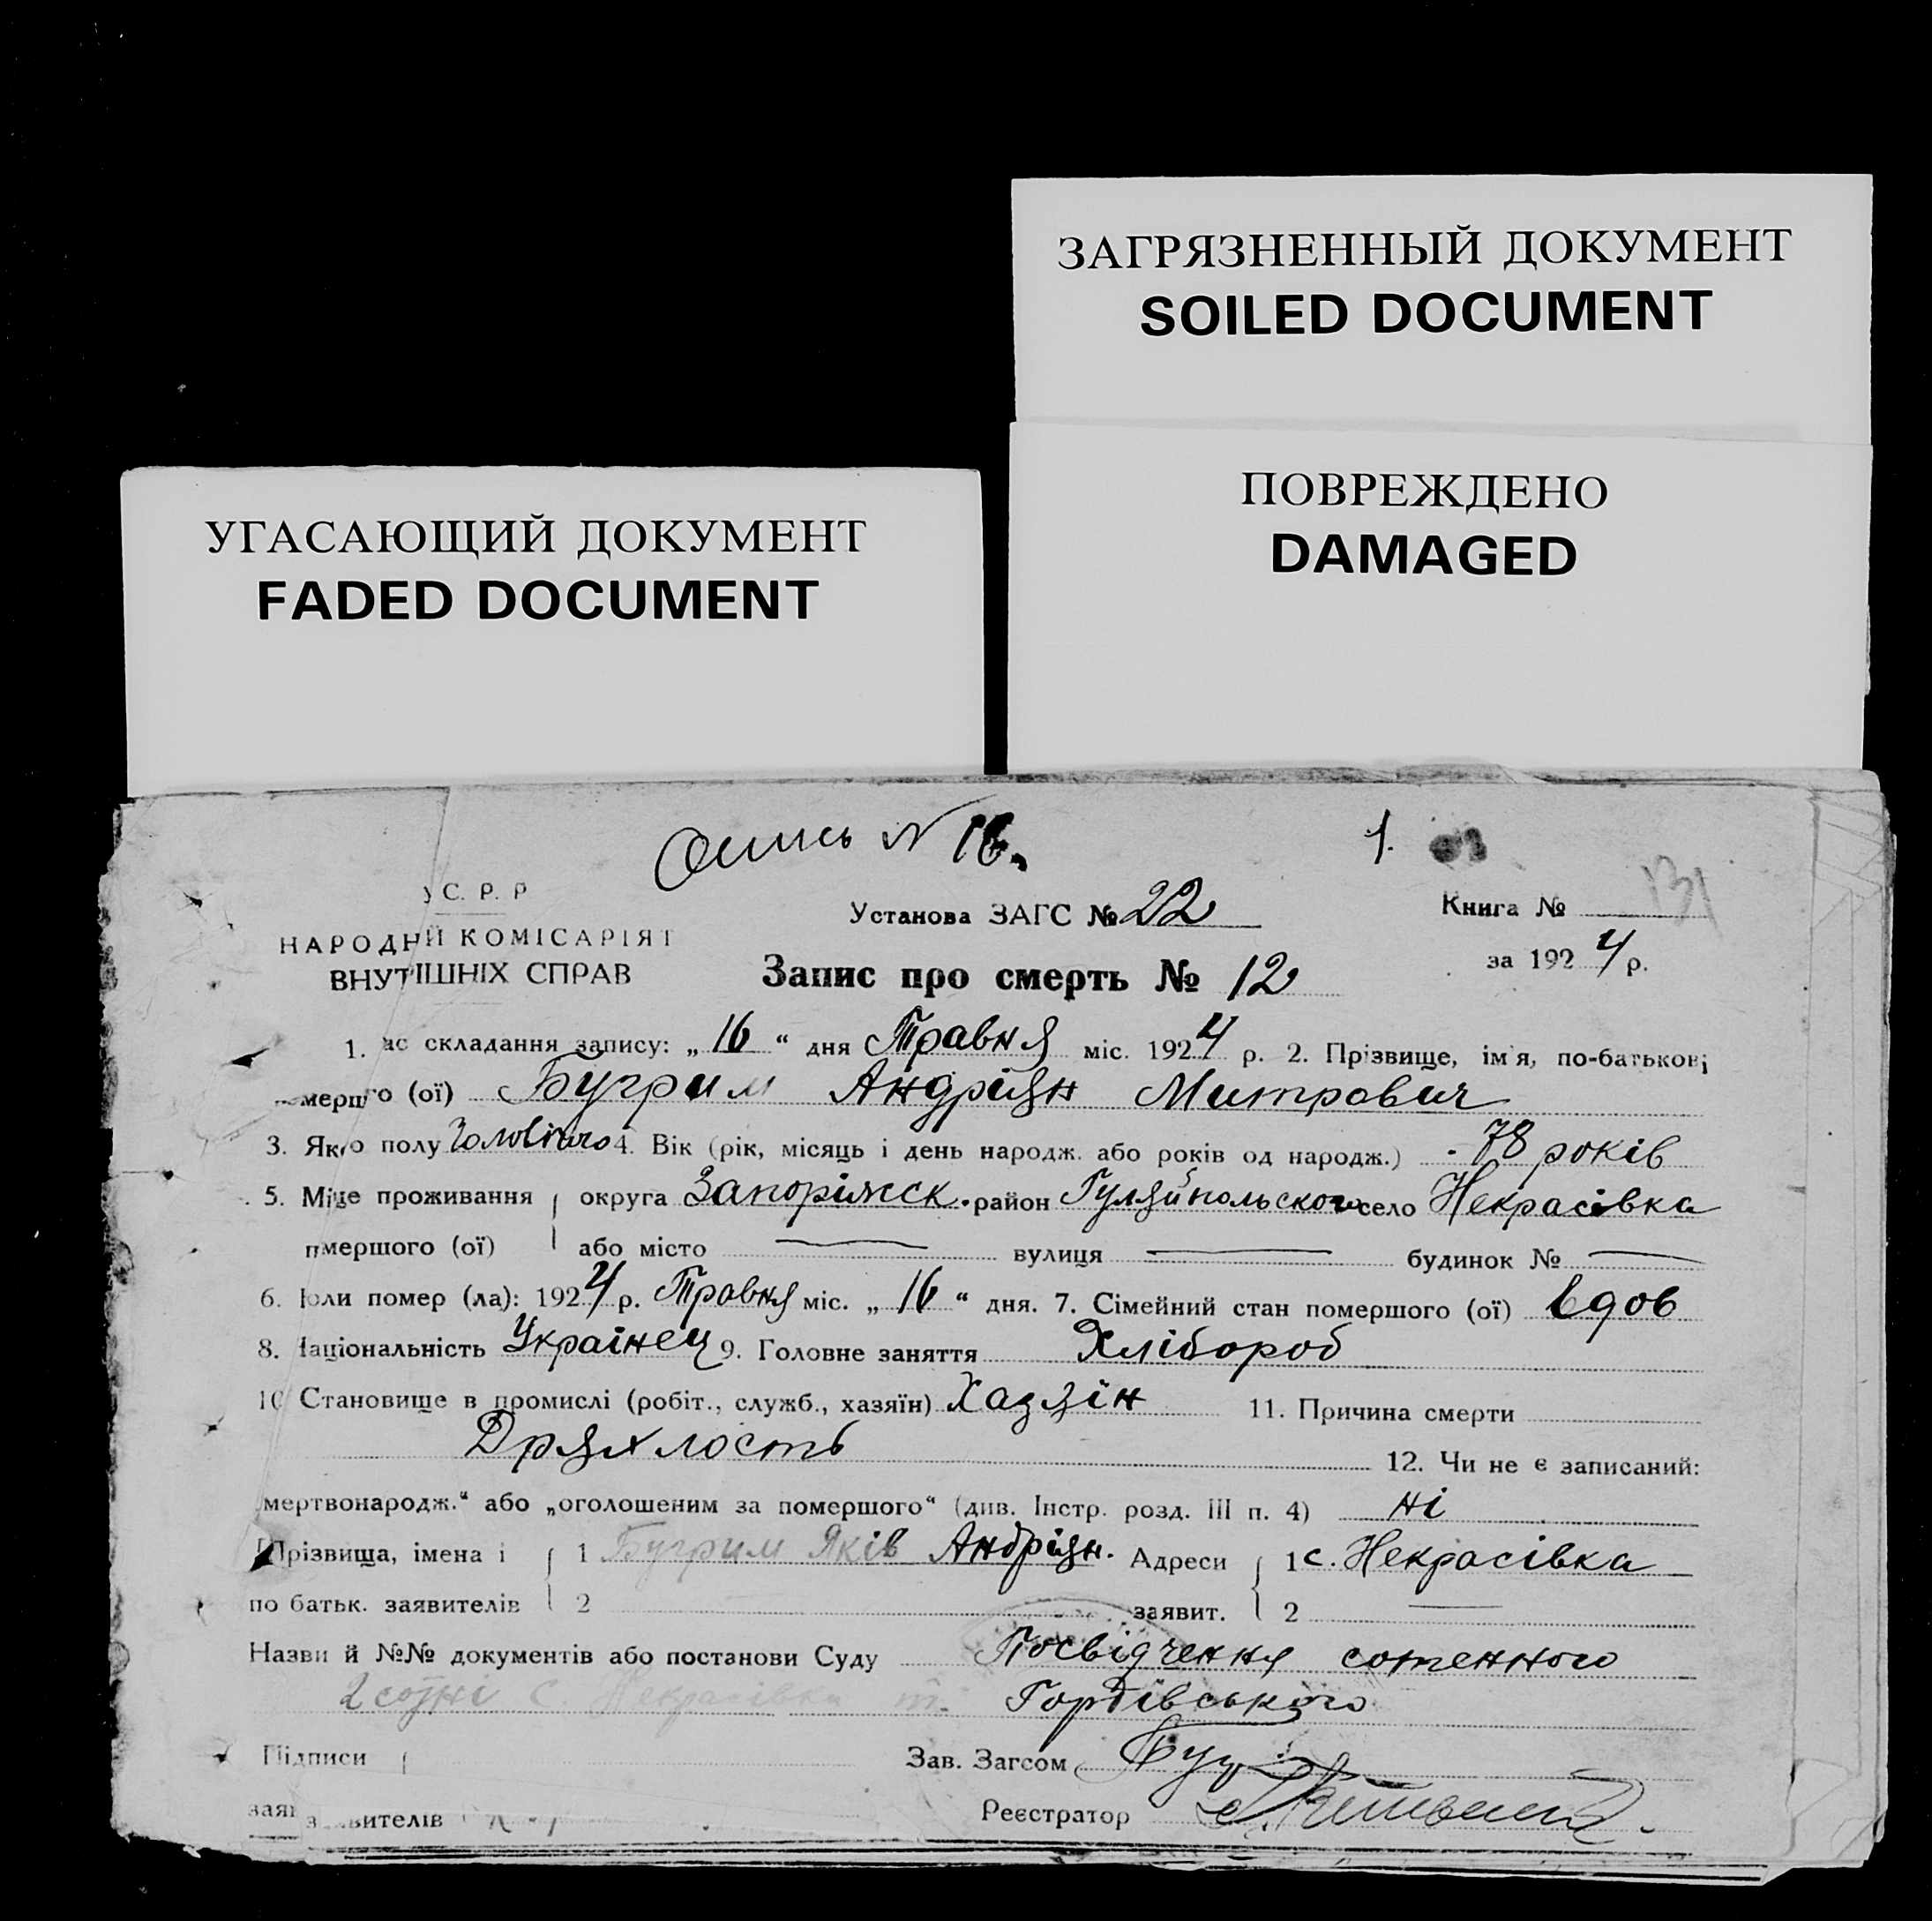 ЗАГРЯЗНЕННЫЙ ДОКУМЕНТ
SOILED DOCUMENT
ПОВРЕЖДЕНО
DAMAGED
УГАСАЮЩИЙ ДОКУМЕНТ
FADED DOCUMENT
Опись N 16. 1.
131
У С. Р. Р
НАРОДНЙ КОМІСАРІЯТ
ВНУТІШНІХ СПРАВ
Установа ЗАГС № 22
Книга №
за 1924 р.
Запис про смерть № 12
1. ас складання запису: „16“ дня Травня міс. 1924 р. 2. Прізвище, ім'я, по-батькові
померш го (ої) Бугрим Андріян Митрович
3. Якго полу Чоловічого 4. Вік (рік, місяць і день народж. або років од народж.) 78 років
5. Міце проживання округа Запоріжск. район Гуляйпольского село Некрасівка
пмершого (ої) або місто — вулиця — будинок № —
6. Коли помер (ла): 1924 р. Травня міс. „16“ дня. 7. Сімейний стан помершого (ої) вдов
8. Національність Українец 9. Головне заняття Хлібороб
10 Становище в промислі (робіт., служб., хазяїн) Хазяїн 11. Причина смерти
Дряхлость 12. Чи не є записаний:
мертвонародж.“ або „оголошеним за помершого“ (див. Інстр. розд. III п. 4) ні
Прізвища, імена і 1 Бугрим Яків Андріян. Адреси 1 с. Некрасівка
по батьк. заявителів 2 заявит. 2 —
Назви й №№ документів або постанови Суду Посвідчення сотенного
2 сотні с. Некрасівки т. Гордівського
Підписи Зав. Загсом
заявителів Реєстратор